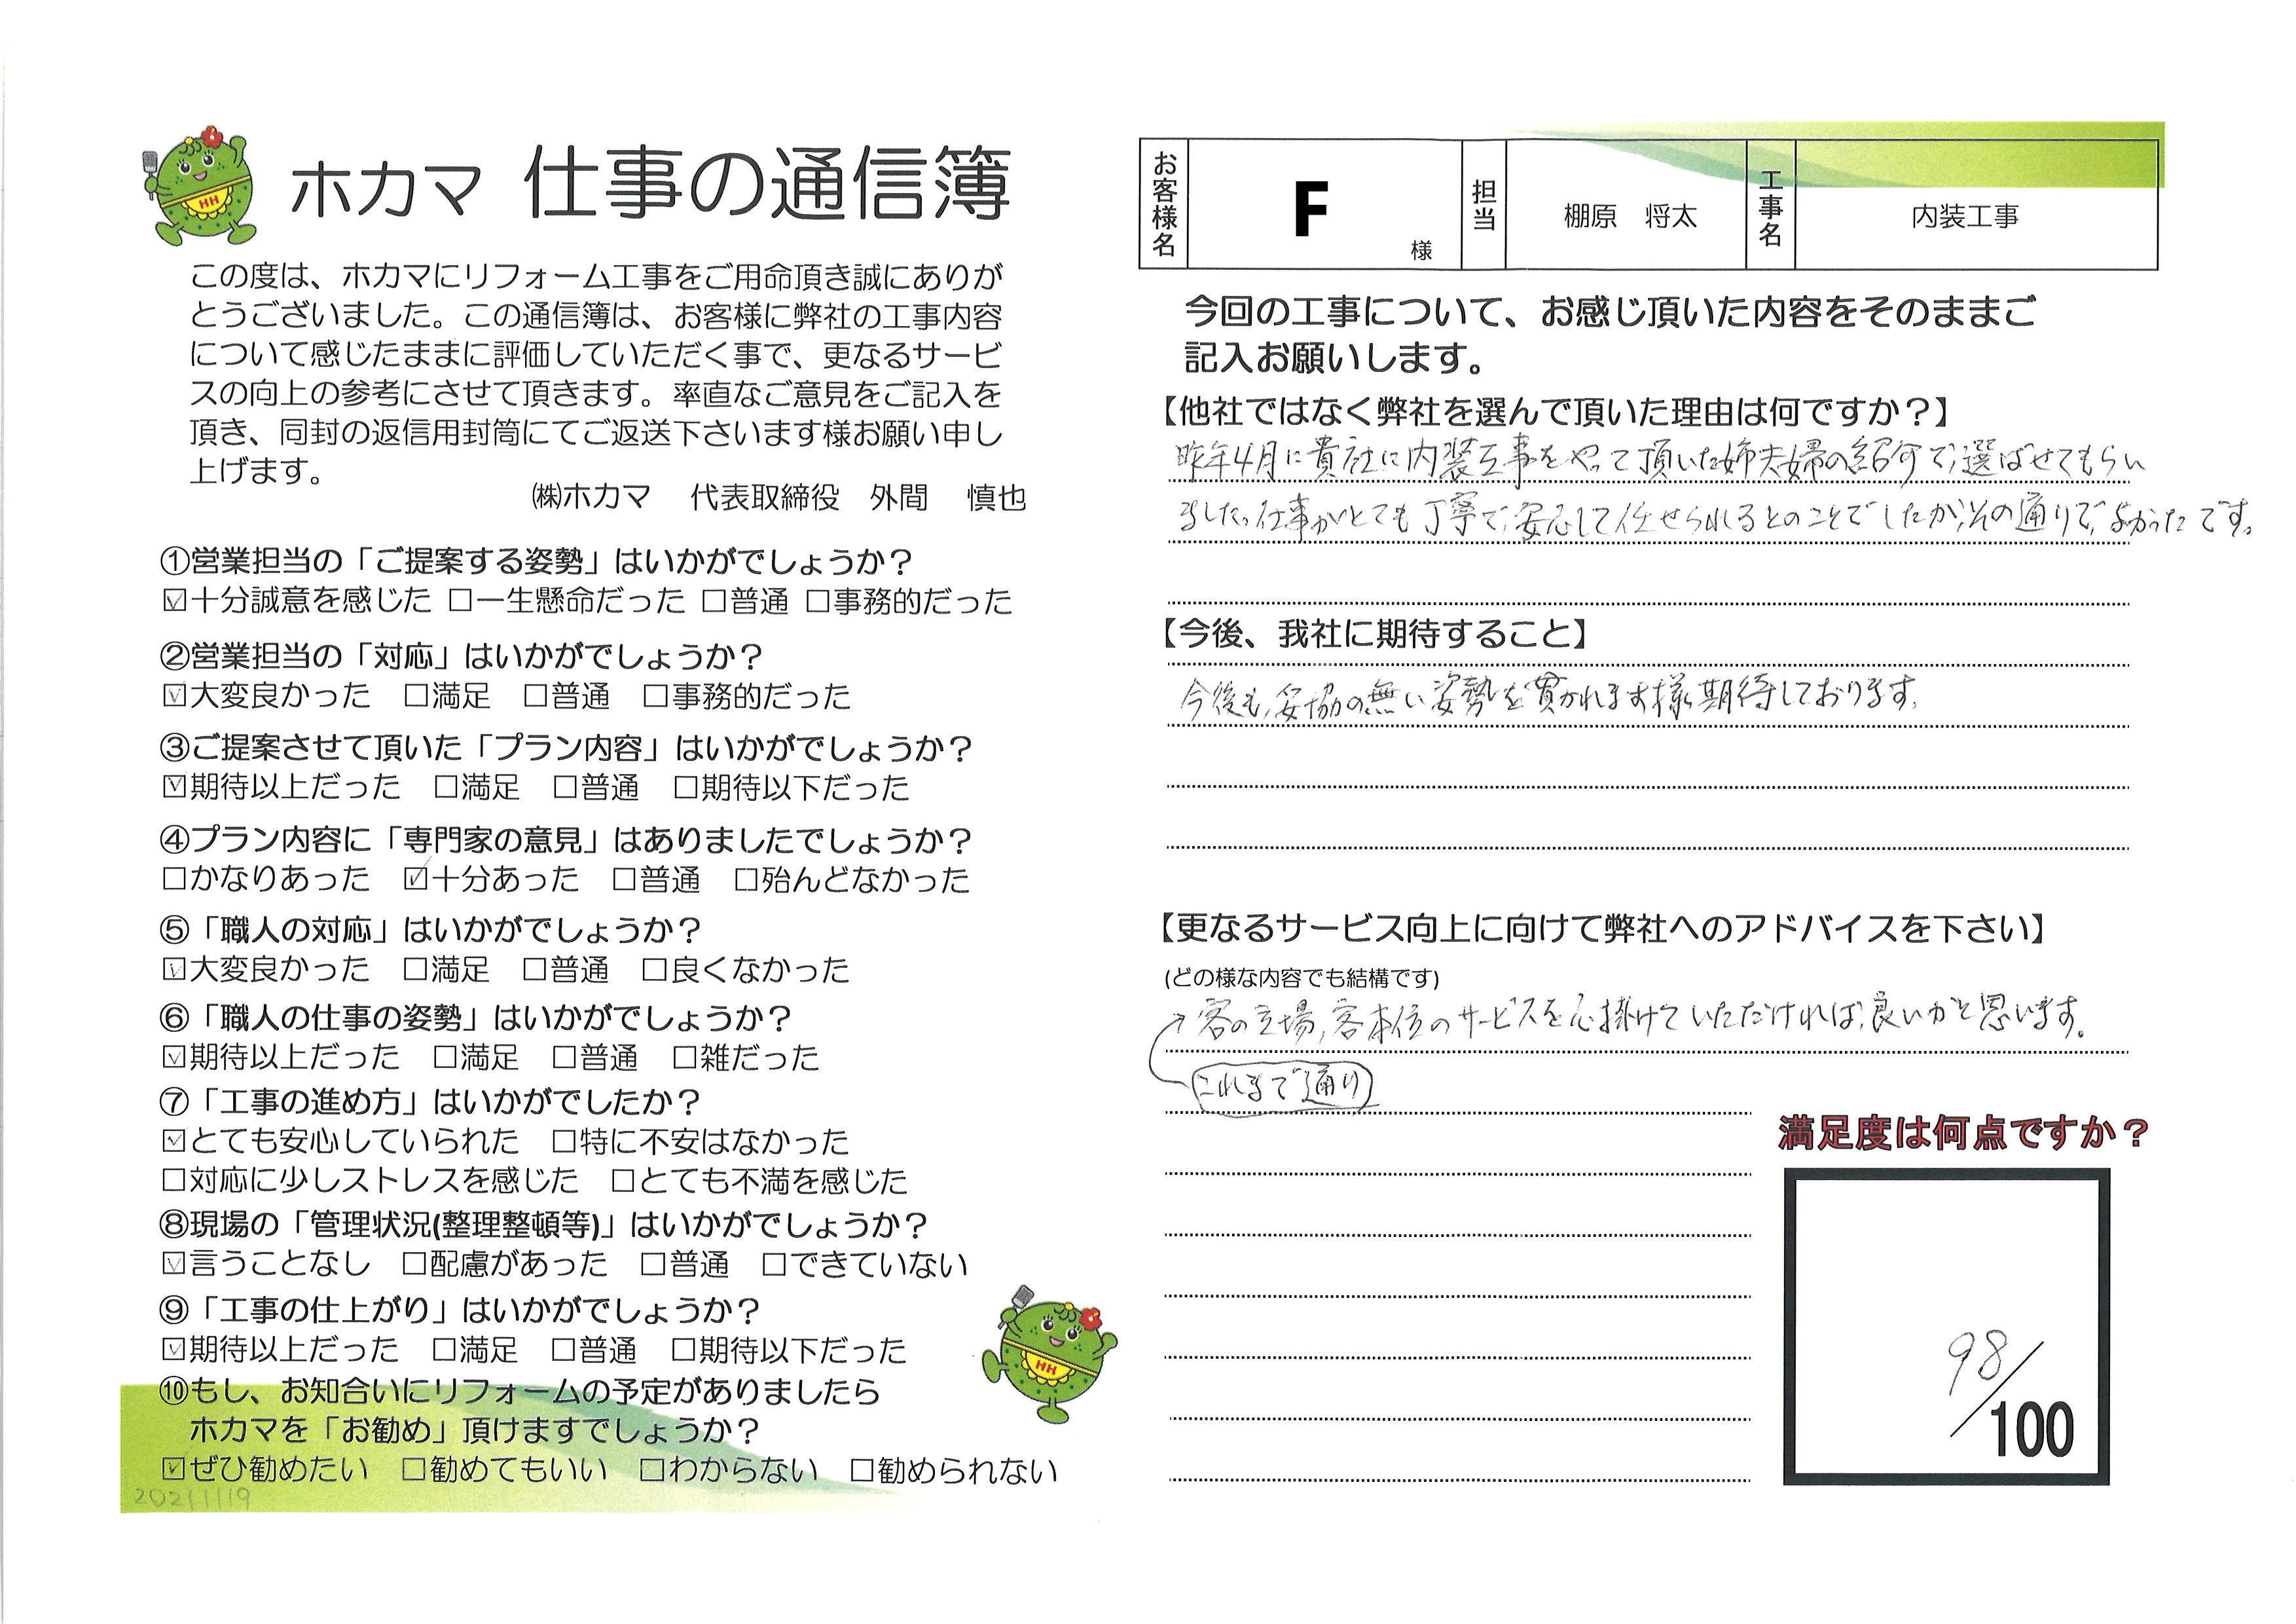 ホカマ 仕事の通信簿
HH
この度は、ホカマにリフォーム工事をご用命頂き誠にありが
とうございました。この通信簿は、お客様に弊社の工事内容
について感じたままに評価していただく事で、更なるサービ
スの向上の参考にさせて頂きます。率直なご意見をご記入を
頂き、同封の返信用封筒にてご返送下さいます様お願い申し
上げます。
㈱ホカマ 代表取締役 外間 慎也
①営業担当の「ご提案する姿勢」はいかがでしょうか？
☑十分誠意を感じた □一生懸命だった □普通 □事務的だった
②営業担当の「対応」はいかがでしょうか？
☑大変良かった □満足 □普通 □事務的だった
③ご提案させて頂いた「プラン内容」はいかがでしょうか？
☑期待以上だった □満足 □普通 □期待以下だった
④プラン内容に「専門家の意見」はありましたでしょうか？
□かなりあった ☑十分あった □普通 □殆んどなかった
⑤「職人の対応」はいかがでしょうか？
☑大変良かった □満足 □普通 □良くなかった
⑥「職人の仕事の姿勢」はいかがでしょうか？
☑期待以上だった □満足 □普通 □雑だった
⑦「工事の進め方」はいかがでしたか？
☑とても安心していられた □特に不安はなかった
□対応に少しストレスを感じた □とても不満を感じた
⑧現場の「管理状況(整理整頓等)」はいかがでしょうか？
☑言うことなし □配慮があった □普通 □できていない
⑨「工事の仕上がり」はいかがでしょうか？
☑期待以上だった □満足 □普通 □期待以下だった
HH
⑩もし、お知合いにリフォームの予定がありましたら
ホカマを「お勧め」頂けますでしょうか？
☑ぜひ勧めたい □勧めてもいい □わからない □勧められない
20211119
お客様名 F 様 担当 棚原 将太 工事名 内装工事
今回の工事について、お感じ頂いた内容をそのままご
記入お願いします。
【他社ではなく弊社を選んで頂いた理由は何ですか？】
昨年4月に貴社に内装工事をやって頂いた姉夫婦の紹介で、選ばせてもらい
ました。仕事がとても丁寧で、安心して任せられるとのことでしたが、その通りで、よかったです。
【今後、我社に期待すること】
今後も、妥協の無い姿勢を貫かれます様、期待しております。
【更なるサービス向上に向けて弊社へのアドバイスを下さい】
(どの様な内容でも結構です)
→客の立場、客本位のサービスを心掛けていただければ、良いかと思います。
これまで通り
満足度は何点ですか？
98/100